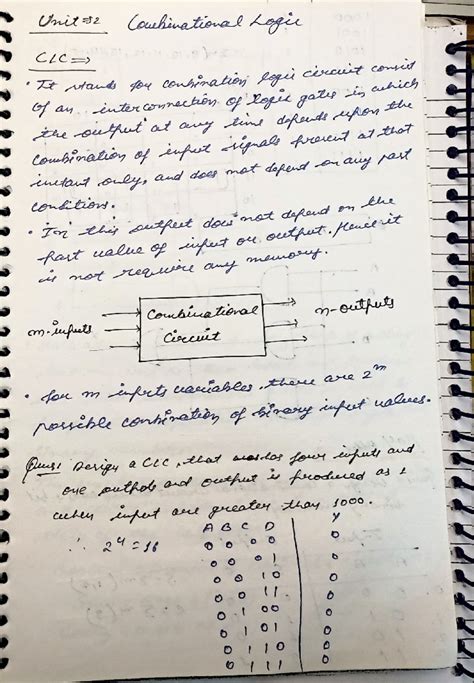 Unit⇒2 Combinational Logic
CLC ⇒
• It stands for conbination logic circuit consist
Of an interconnection of logic gates in which
the output at any time depends upon the
Combination of input signals present at that
instant only, and does not depend on any past
conditions.
• In this output does not depend on the
past value of input or output. Hence it
is not require any memory.
m-inputs
Combinational
Circuit
n-outputs
• for m inputs variables, there are 2^m
possible conbination of binary input values.
Ques1 Design a CLC, that four inputs and
one and output is produced as 1
when input are greater than 1000.
∴ 2^4 = 16
A B C D Y
0 0 0 0 0
0 0 0 1 0
0 0 1 0 0
0 0 1 1 0
0 1 0 0 0
0 1 0 1 0
0 1 1 0 0
0 1 1 1 0